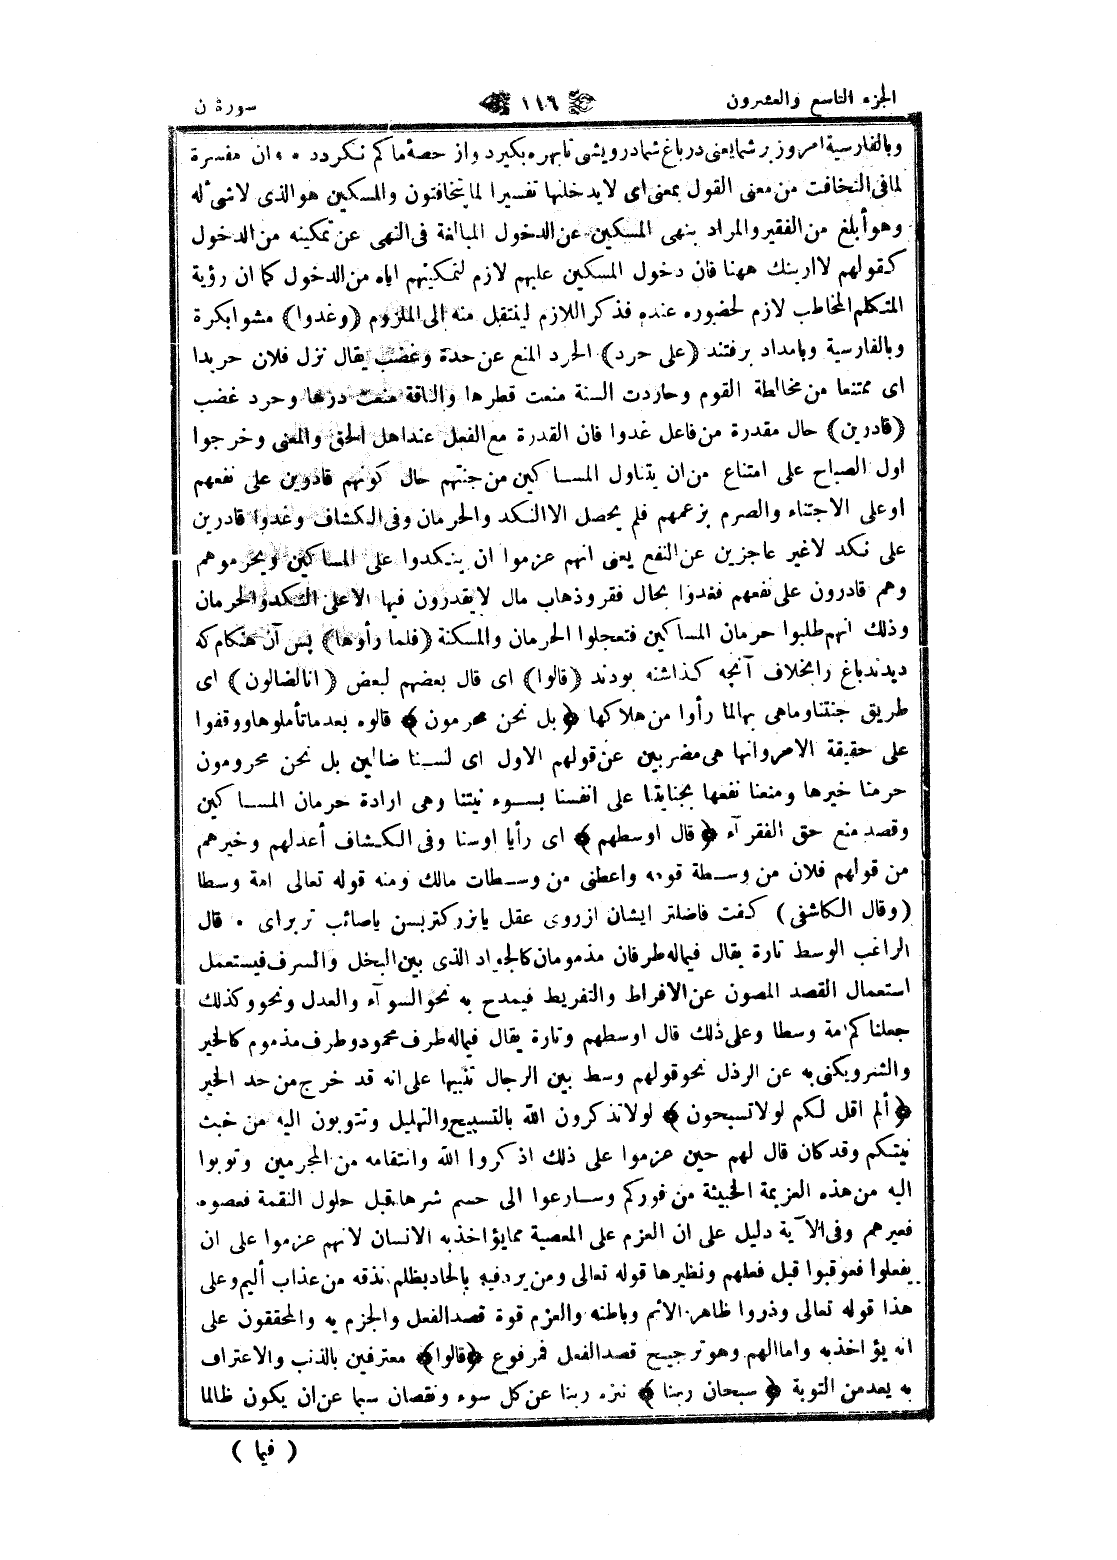 الجزء التاسع والعشرون ١١٦ سورة ن
وبالفارسية امروز بر شما يعنى در باغ شما درويشى تا بهره بكيرد واز حصهٔ ما كم نكردد ٠ وان مفسرة
لما فى التخافت من معنى القول بمعنى اى لا يدخلنها تفسيرا لما يتخافتون والمسكين هو الذى لا شىء له
وهو أبلغ من الفقير والمراد بنهى المسكين عن الدخول المبالغة فى النهى عن تمكينه من الدخول
كقولهم لا ارينك ههنا فان دخول المسكين عليهم لازم لتمكينهم اياه من الدخول كما ان رؤية
المتكلم المخاطب لازم لحضوره عنده فذكر اللازم لينتقل منه الى الملزوم (وغدوا) مشوا بكرة
وبالفارسية وبامداد برفتند (على حرد) الحرد المنع عن حدة وغضب يقال نزل فلان حريدا
اى ممتنعا من مخالطة القوم وحاردت السنة منعت قطرها والناقة منعت درها وحرد غضب
(قادرين) حال مقدرة من فاعل غدوا فان القدرة مع الفعل عند اهل الحق والمعنى وخرجوا
اول الصباح على امتناع من ان يتناول المساكين من جنتهم حال كونهم قادرين على نفعهم
او على الاجتناء والصرم بزعمهم فلم يحصل الا النكد والحرمان وفى الكشاف وغدوا قادرين
على نكد لا غير عاجزين عن النفع يعنى انهم عزموا ان يتنكدوا على المساكين ويحرموهم
وهم قادرون على نفعهم فغدوا بحال فقر وذهاب مال لا يقدرون فيها الا على النكد والحرمان
وذلك انهم طلبوا حرمان المساكين فتعجلوا الحرمان والمسكنة (فلما رأوها) پس آن هنكام كه
ديدند باغ را بخلاف آنچه كذاشته بودند (قالوا) اى قال بعضهم لبعض (انا لضالون) اى
طريق جنتنا وما هى بها لما رأوا من هلاكها ﴿بل نحن محرمون﴾ قالوه بعد ما تأملوها ووقفوا
على حقيقة الامر وانها هى مضربين عن قولهم الاول اى لسنا ضالين بل نحن محرومون
حرمنا خيرها ومنعنا نفعها بجنايتنا على انفسنا بسوء نيتنا وهى ارادة حرمان المساكين
وقصد منع حق الفقرآء ﴿قال اوسطهم﴾ اى رأيا او سنا وفى الكشاف أعدلهم وخيرهم
من قولهم فلان من وسطة قومه واعطنى من وسطات مالك ومنه قوله تعالى امة وسطا
(وقال الكاشفى) كفت فاضلتر ايشان از روى عقل يا بزركتر بسن يا صائب تر براى ٠ قال
الراغب الوسط تارة يقال فيما له طرفان مذمومان كالجود الذى بين البخل والسرف فيستعمل
استعمال القصد المصون عن الافراط والتفريط فيمدح به نحو السوآء والعدل ونحو وكذلك
جعلناكم امة وسطا وعلى ذلك قال اوسطهم وتارة يقال فيما له طرف محمود وطرف مذموم كالخير
والشر ويكنى به عن الرذل نحو قولهم وسط بين الرجال تنبيها على انه قد خرج من حد الخير
﴿ألم اقل لكم لولا تسبحون﴾ لولا تذكرون الله بالتسبيح والتهليل وتتوبون اليه من خبث
نيتكم وقد كان قال لهم حين عزموا على ذلك اذكروا الله وانتقامه من المجرمين وتوبوا
اليه من هذه العزيمة الخبيثة من فوركم وسارعوا الى حسم شرها قبل حلول النقمة فعصوه
فعيرهم وفى الآية دليل على ان العزم على المعصية مما يؤاخذ به الانسان لانهم عزموا على ان
يفعلوا فعوقبوا قبل فعلهم ونظيرها قوله تعالى ومن يرد فيه بالحاد بظلم نذقه من عذاب أليم وعلى
هذا قوله تعالى وذروا ظاهر الاثم وباطنه والعزم قوة قصد الفعل والجزم به والمحققون على
انه يؤاخذ به واما الهم وهو ترجيح قصد الفعل فمرفوع ﴿قالوا﴾ معترفين بالذنب والاعتراف
به يعد من التوبة ﴿سبحان ربنا﴾ نزه ربنا عن كل سوء ونقصان سيما عن ان يكون ظالما
(فيما)